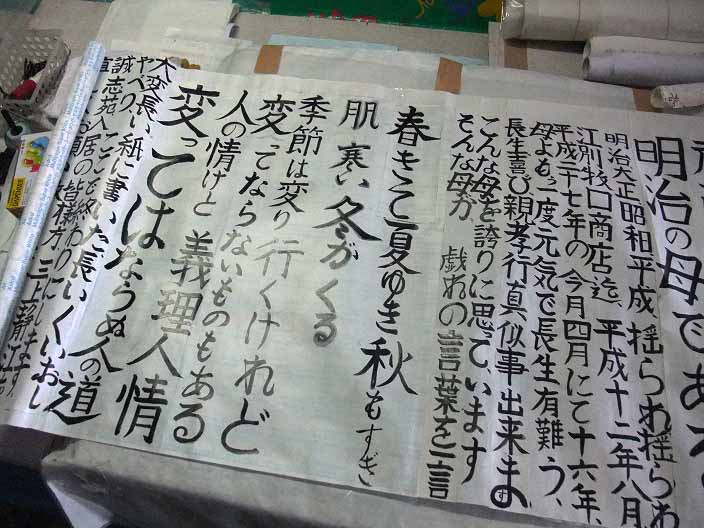 明治の母である
明治大正昭和平成、揺られ揺られ
江別牧口商店迄、平成十二年八月
平成二十七年の今月四月にて十六年、
母よもう一度元気で長生有難う
長生喜び親孝行真似事出来ます
こんな母を誇りに思ています
そんな母が 戯れの言葉を一言
春きて夏ゆき秋もすぎ
肌寒い冬がくる
季節は変り行くけれど
変ってならないものもある
人の情けと義理人情
変ってはならぬ人の道
大変長い紙に書いた長いくいおし
ヤベリ、ここで終わり